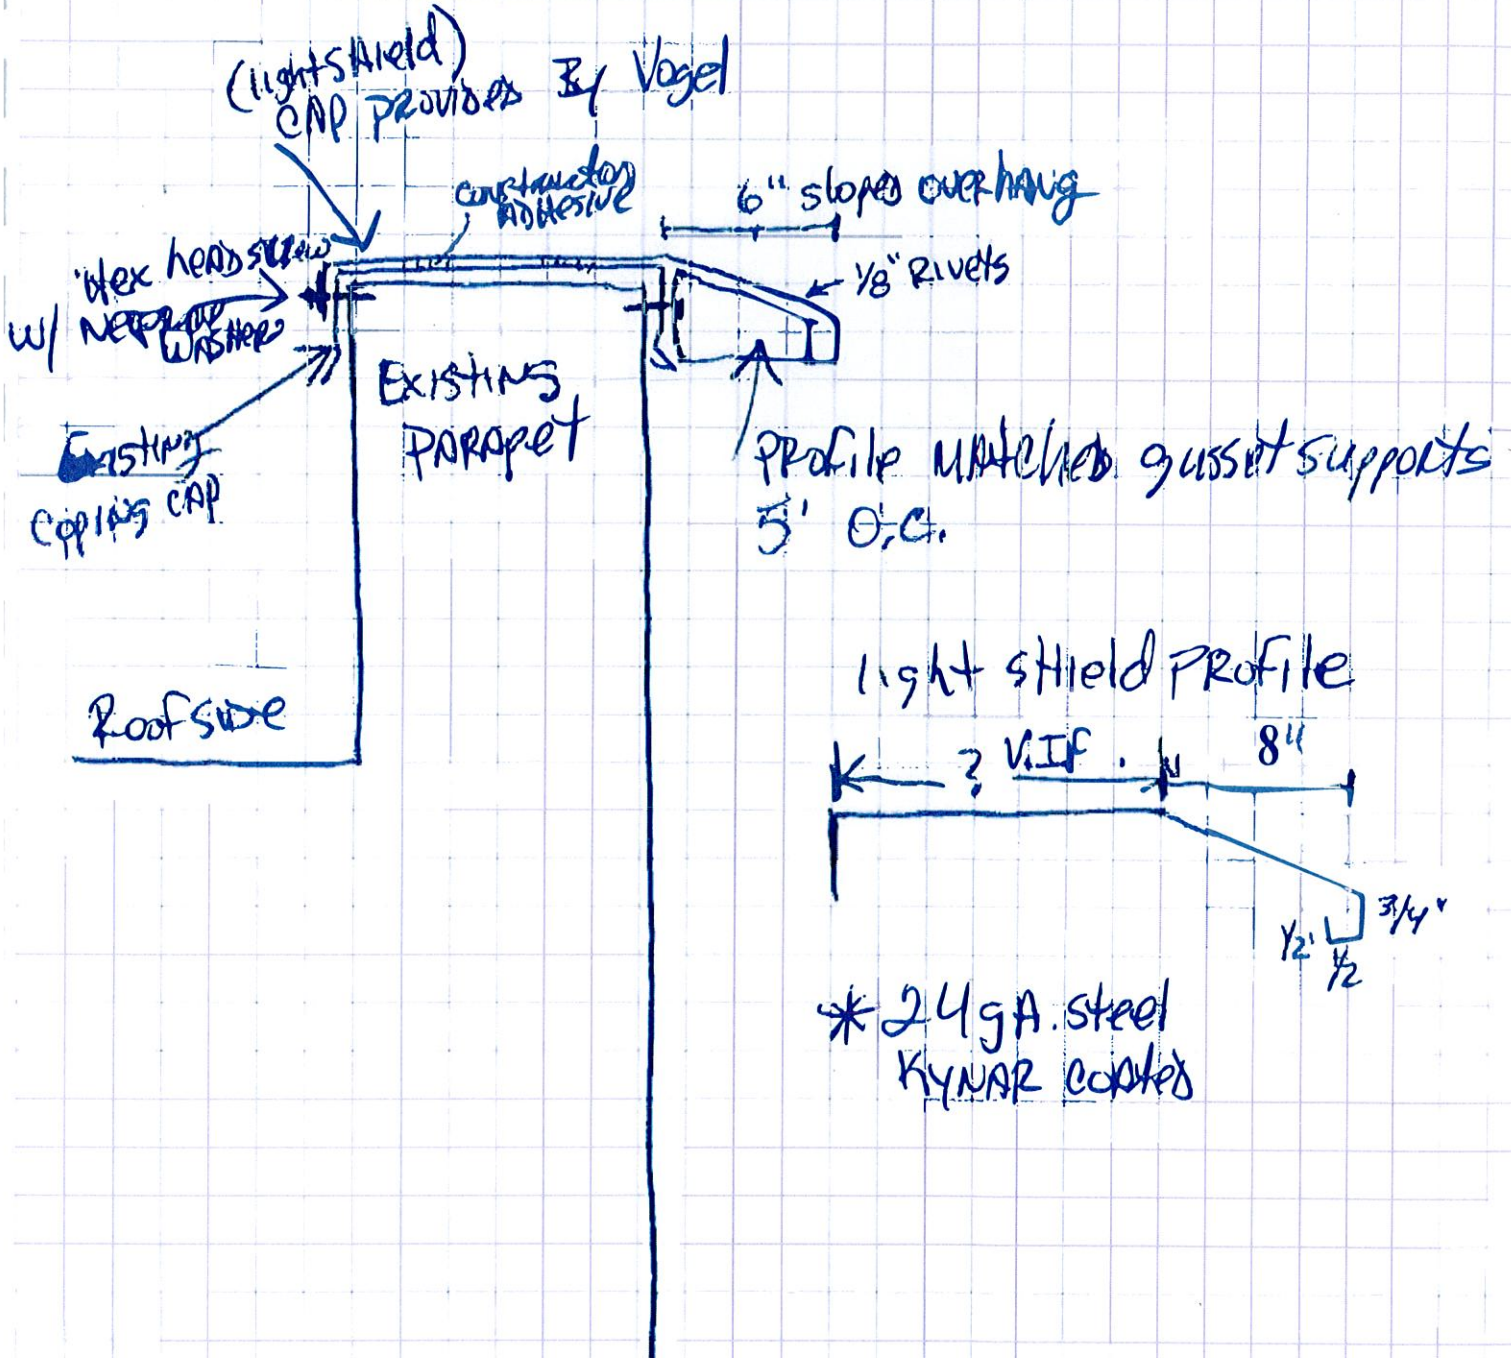 (lightshield)
CAP PROVIDED By Vogel
construction
ADHESIVE
6" sloped overhang
Hex head screw
w/ NEOPRENE
WASHER
1/8" Rivets
Existing
coping CAP
Existing
PARAPET
PROFILE MATCHED gusset supports
5' O.C.
Roofside
light SHIELD PROFILE
? V.I.F.
8"
3/4"
1/2"
1/2
* 24 gA. steel
KYNAR coated